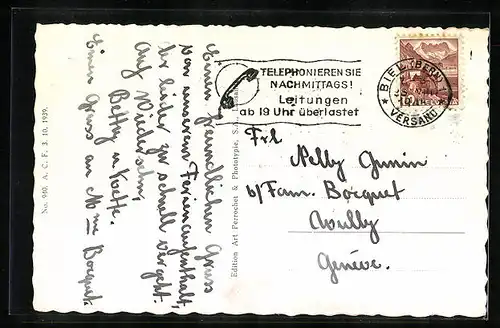 TELEPHONIEREN SIE
NACHMITTAGS!
Leitungen
ab 19 Uhr überlastet
BIEL (BERN)
VERSAND
Einen freundlichen Gruss
von unserem Ferienaufenthalt,
der leider zu schnell vergeht.
Auf Wiedersehn,
Betty u Kette.
Einen Gruss an Mme Bocquet.
Frl
Nelly
b/Fam. Bocquet
Genève.
Edition Art. Perrochet & Phototypie, S.
No. 940. A. C. F. 3. 10. 1939.